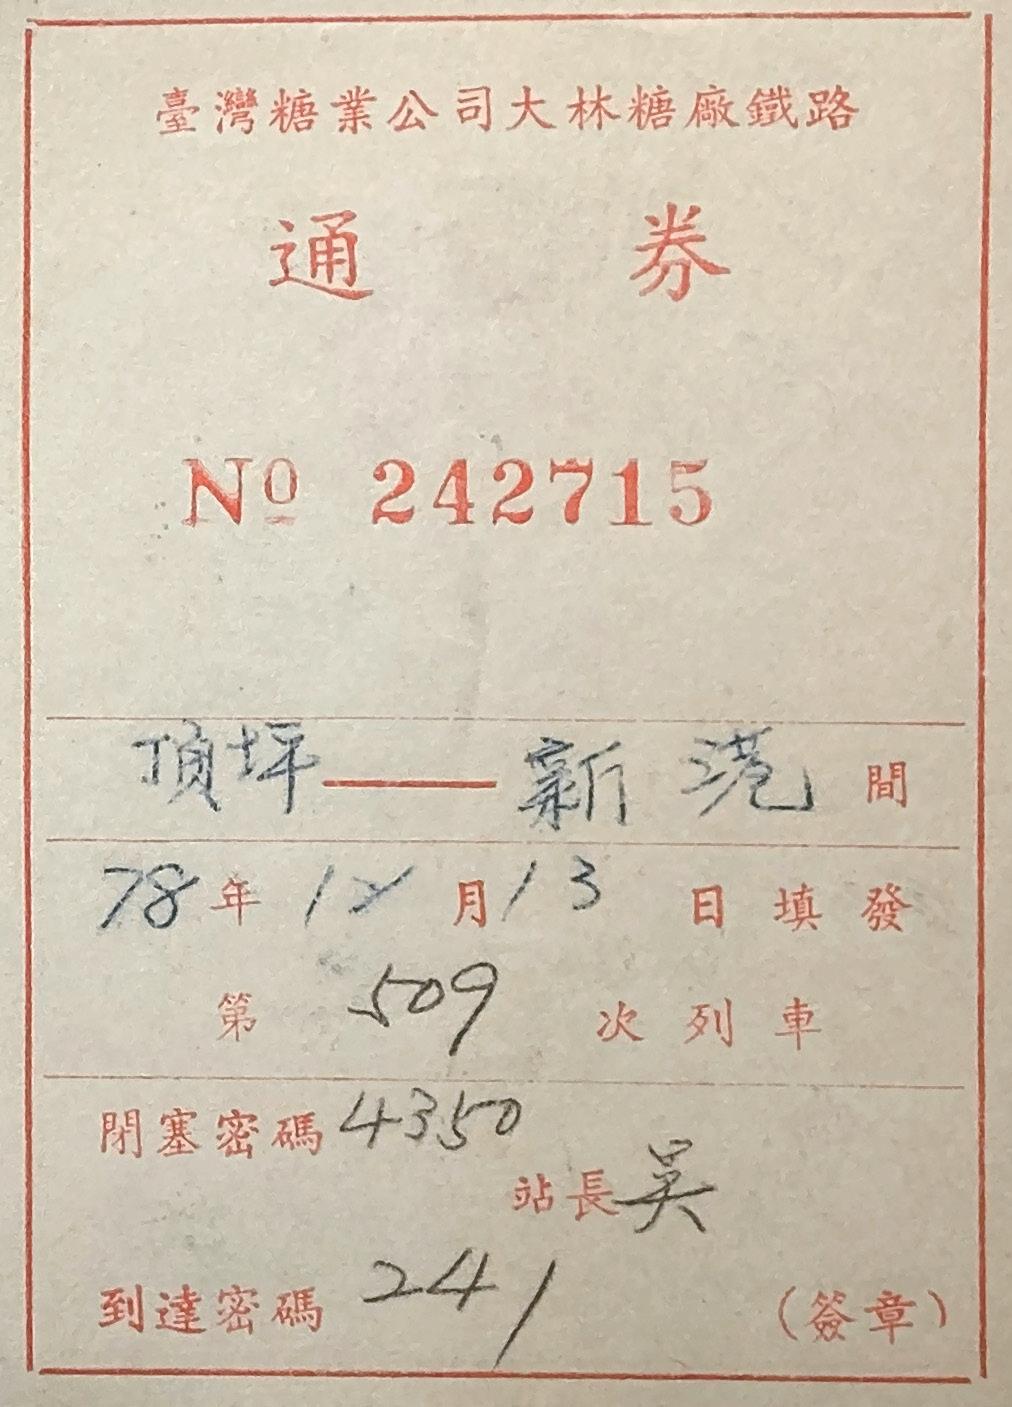 臺灣糖業公司大林糖廠鐵路
通券
No 242715
頂坪——新港間
78年12月13日填發
第509次列車
閉塞密碼4350
站長吳
到達密碼241
(簽章)